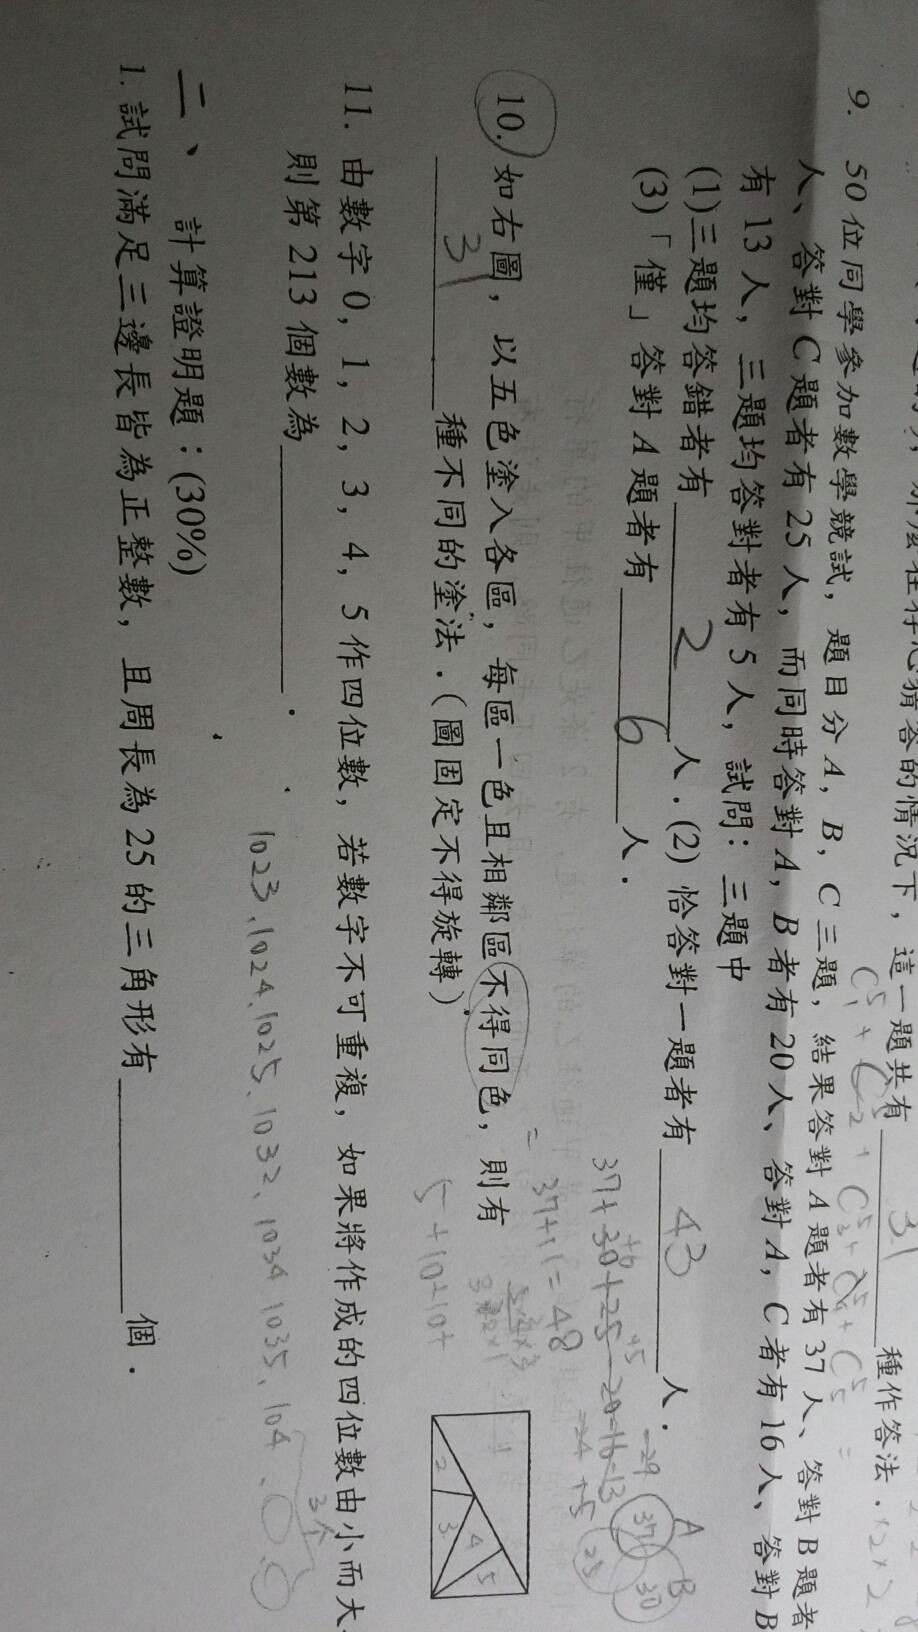 這一題共有 31 種作答法.
9. 50位同學參加數學競試, 題目分A, B, C三題, 結果答對A題者有37人、答對B題者
人、答對C題者有25人, 而同時答對A, B者有20人、答對A, C者有16人、答對B
有13人, 三題均答對者有5人, 試問: 三題中
(1)三題均答錯者有 2 人.(2) 恰答對一題者有 43 人.
(3)「僅」答對A題者有 6 人.
37+30+25-20-16-13
=37+11=48
A
B
37
30
25
10. 如右圖, 以五色塗入各區, 每區一色且相鄰區不得同色, 則有
31 種不同的塗法.(圖固定不得旋轉)
5+10+10+
2
3
4
5
11. 由數字0, 1, 2, 3, 4, 5作四位數, 若數字不可重複, 如果將作成的四位數由小而大,
則第213個數為 .
1023、1024、1025、1032、1034、1035、104
3个
二、 計算證明題:(30%)
1. 試問滿足三邊長皆為正整數, 且周長為25的三角形有 個.